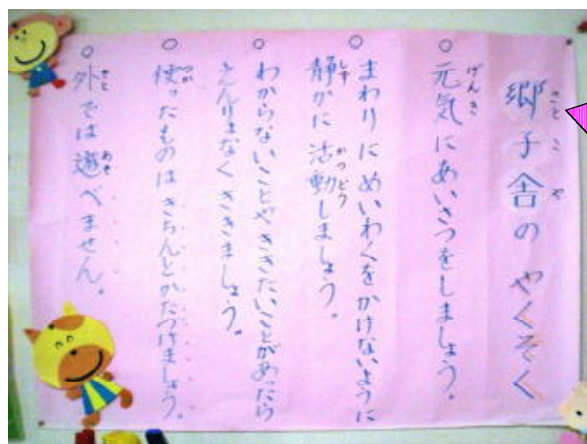 郷子舎のやくそく
○元気にあいさつをしましょう。
○まわりにめいわくをかけないように
静かに活動しましょう。
○わからないことやききたいことがあったら
えんりょなくききましょう。
○使ったものはきちんとかたづけましょう。
○外では遊べません。